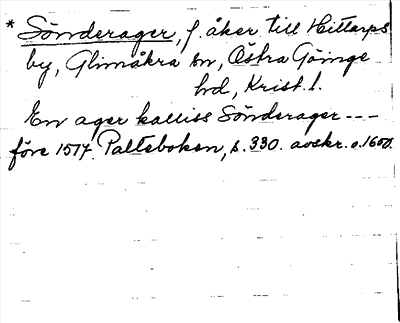 * Sönderager, f. åker till Hittarps
by, Glimåkra sn, Östra Göinge
hd, Krist. l.
En ager kalliss Sönderager ---
före 1517. Palteboken, s. 330. avskr. o. 1600.